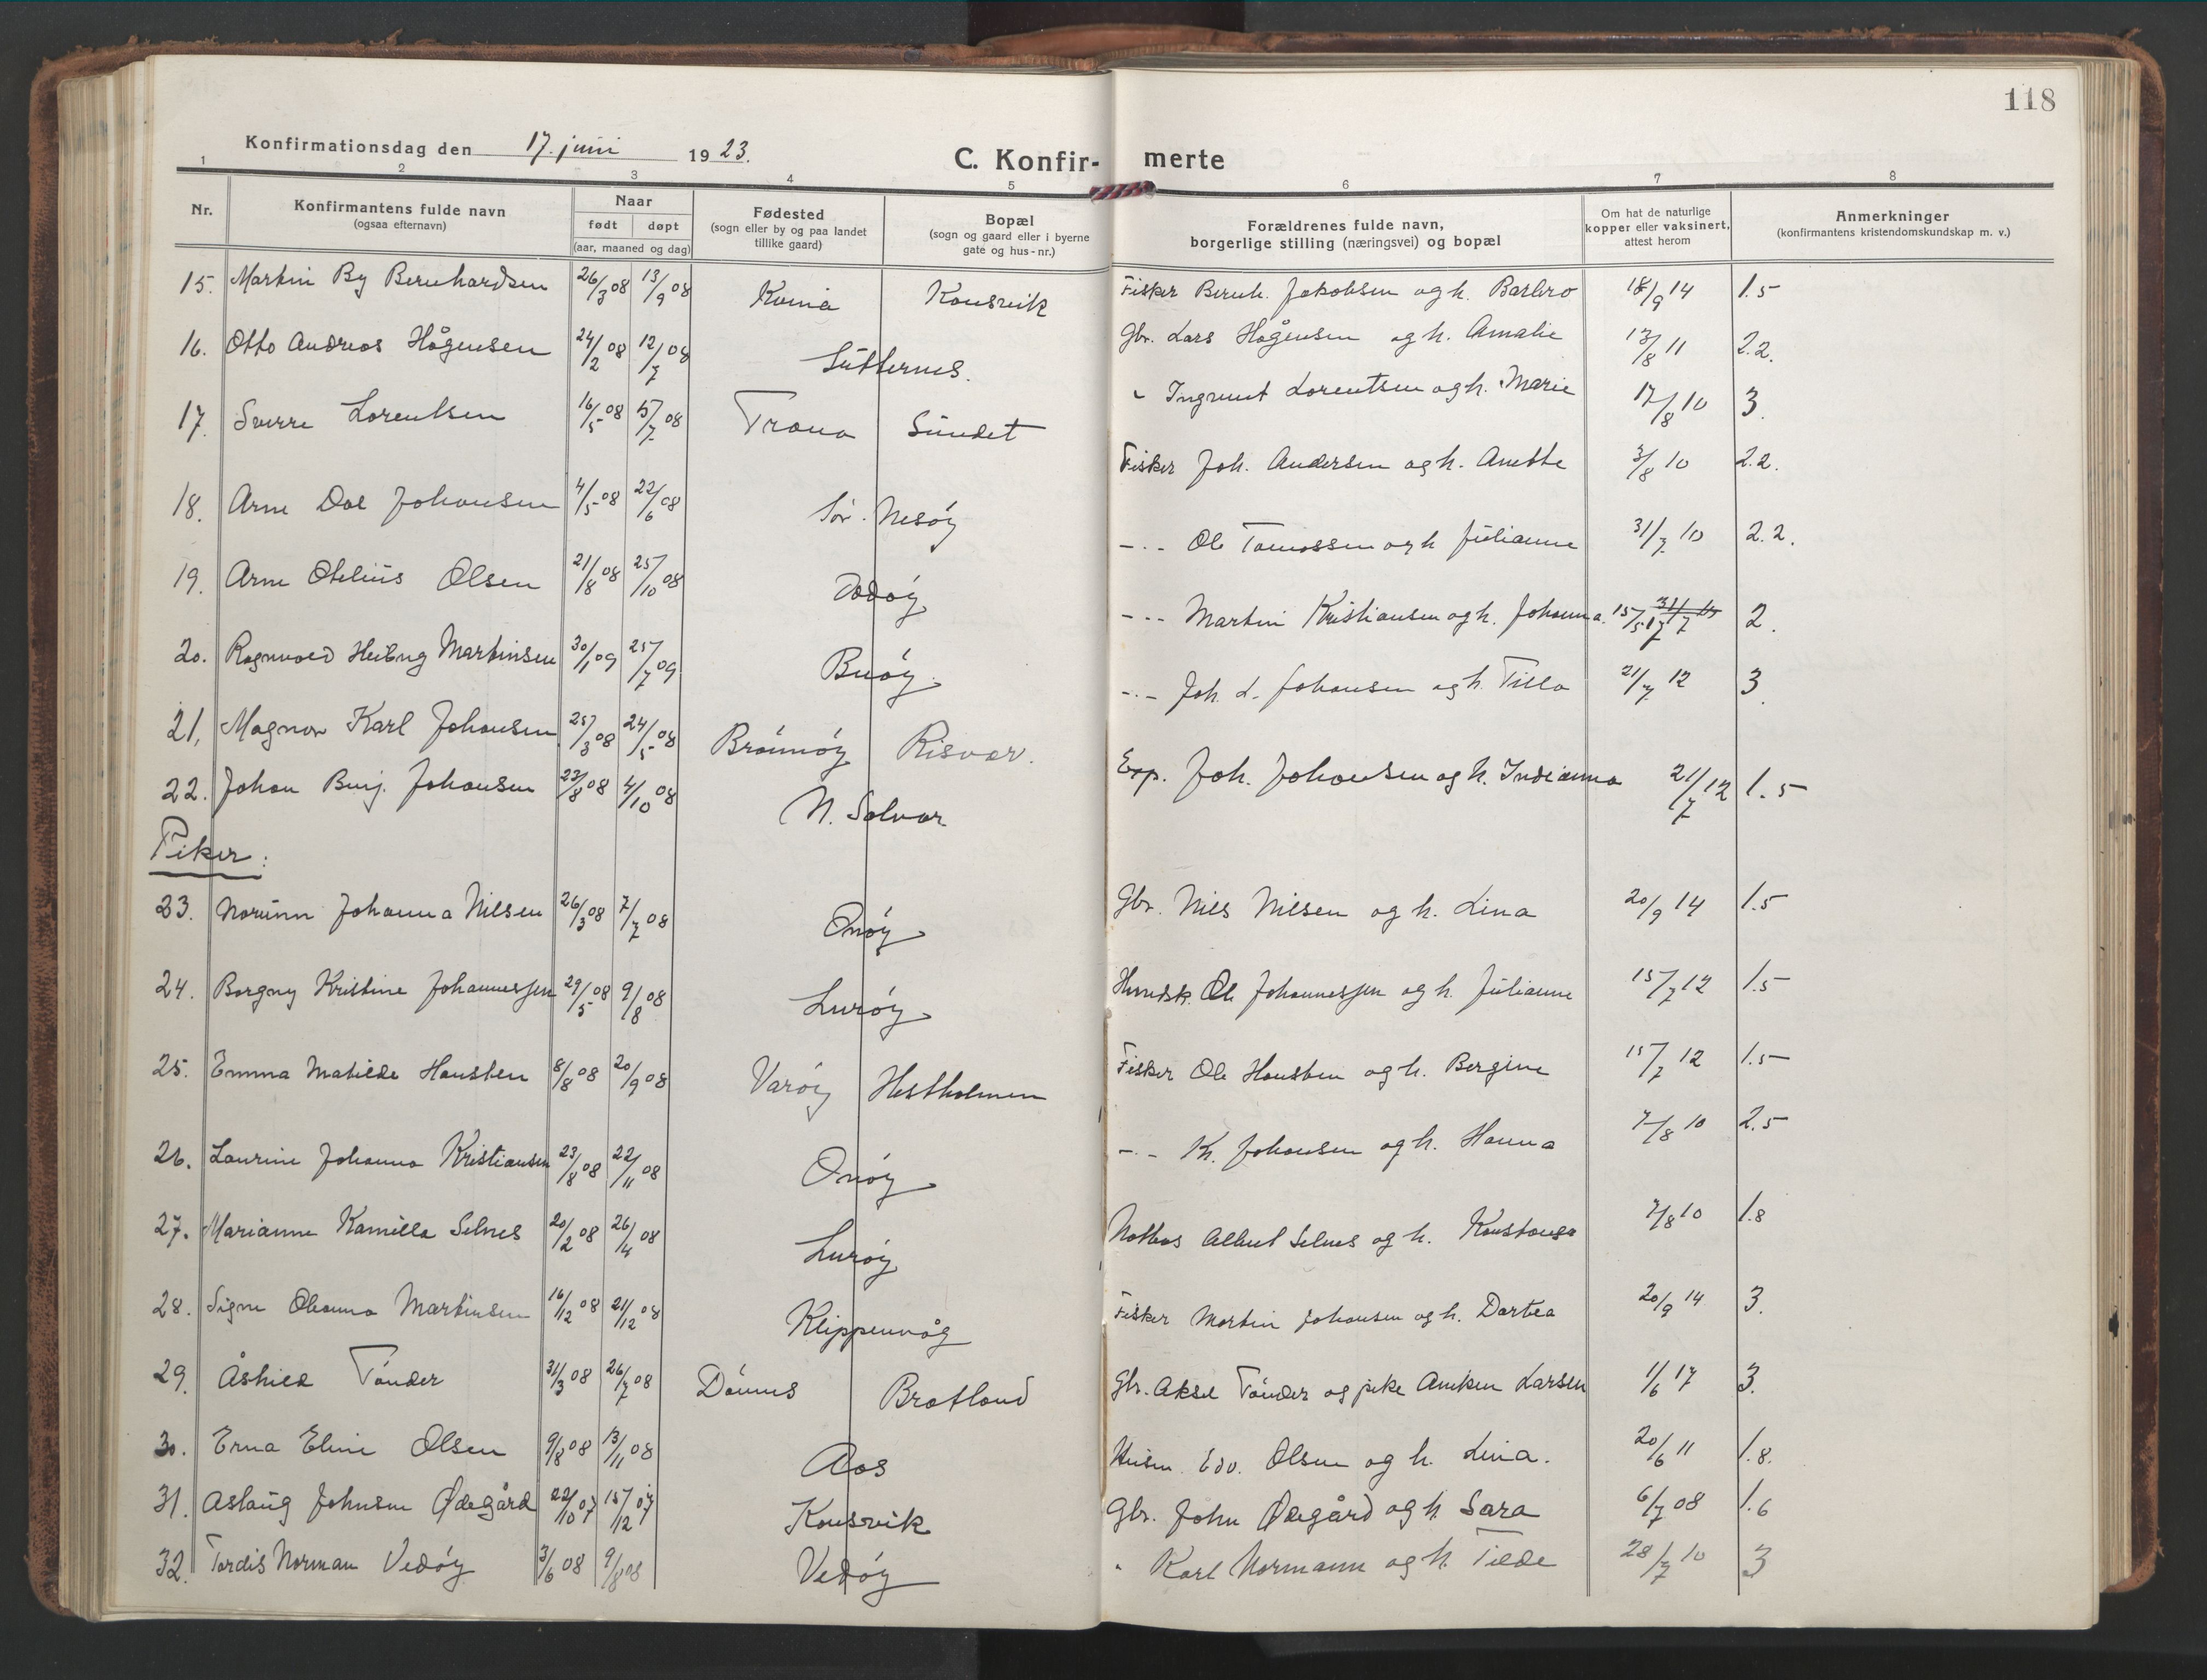 118
Konfirmationsdag den 17. juni 1923.
C. Konfir- merte
1 2 3 4 5 6 7 8
Nr.
Konfirmantens fulde navn
(ogsaa efternavn)
Naar
født døpt
(aar, maaned og dag)
Fødested
(sogn eller by og paa landet
tillike gaard)
Bopæl
(sogn og gaard eller i byerne
gate og hus-nr.)
Forældrenes fulde navn,
borgerlige stilling (næringsvei) og bopæl
Om hat de naturlige
kopper eller vaksinert,
attest herom
Anmerkninger
(konfirmantens kristendomskundskap m. v.)
15. Martin By Bernhardsen 26/3 08 13/9 08 Kvina Konsvik Fisker Bernh. Jakobsen og h. Barbro 18/9 14 1.5
16. Otto Andreas Hågensen 24/2 08 12/7 08 Lütternes. Gbr. Lars Hågensen og h. Amalie 13/8 11 2.2.
17. Sverre Lorentsen 16/5 08 5/7 08 Træna Sundet " Ingvart Lorentsen og h. Marie 17/8 10 3.
18. Arne Dal Johansen 4/5 08 22/6 08 Sør-Nesøy Fisker Joh. Andersen og h. Anette 3/8 10 2.2.
19. Arne Otelius Olsen 21/8 08 25/10 08 Dødøy -"- Ole Tomassen og h Julianne 31/7 10 2.2.
20. Ragnvald Hedvig Martinsen 30/1 09 25/7 09 Buøy -"- Martin Kristiansen og h. Johanna. 15/5 17 2.
21. Magnor Karl Johansen 25/3 08 24/5 08 Brønnøy Risvær. -"- Joh. L. Johansen og h. Tilla 21/7 12 3.
22. Johan Benj. Johansen 23/8 08 4/10 08 N. Solvær Exp. Joh. Johansen og h. Indianna 21/7 12 1.5
Piker:
23. Norunn Johanna Nilsen 26/3 08 7/7 08 Onøy Gbr. Nils Nilsen og h. Lina 20/9 14 1.5
24. Borgny Kristine Johannessen 29/5 08 9/8 08 Lurøy Ole Johannessen og h. Julianne 15/7 12 1.5
25. Emma Matilde Hansten 8/8 08 20/9 08 Varøy Hestholmen Fisker Ole Hansten og h. Bergine 15/7 12 1.5
26. Laurine Johanna Kristiansen 23/8 08 22/11 08 Onøy -"- K. Johansen og h. Hanna 7/8 10 2.5
27. Marianne Kamilla Selnes 20/2 08 26/4 08 Lurøy Notbas Albert Selnes og h. Konstanse 7/8 10 1.8
28. Signe Oleanna Martinsen 16/12 08 21/12 08 Klippenvåg Fisker Martin Johansen og h. Dortea 20/9 14 3.
29. Åshild Tønder 31/3 08 26/7 08 Dønnes Bratland Gbr. Aksel Tønder og pike Aneken Larsen 1/6 17 3.
30. Erna Eline Olsen 9/8 08 13/11 08 Aas Husm. Edv. Olsen og h. Lina. 20/6 11 1.8.
31. Aslaug Johnsen Ødegård 22/10 07 15/12 07 Konsvik Gbr. John Ødegård og h. Sara 6/7 08 1.6
32. Tordis Norman Vedøy 3/6 08 9/8 08 Vedøy " Karl Normann og h. Tilde 28/7 10 3